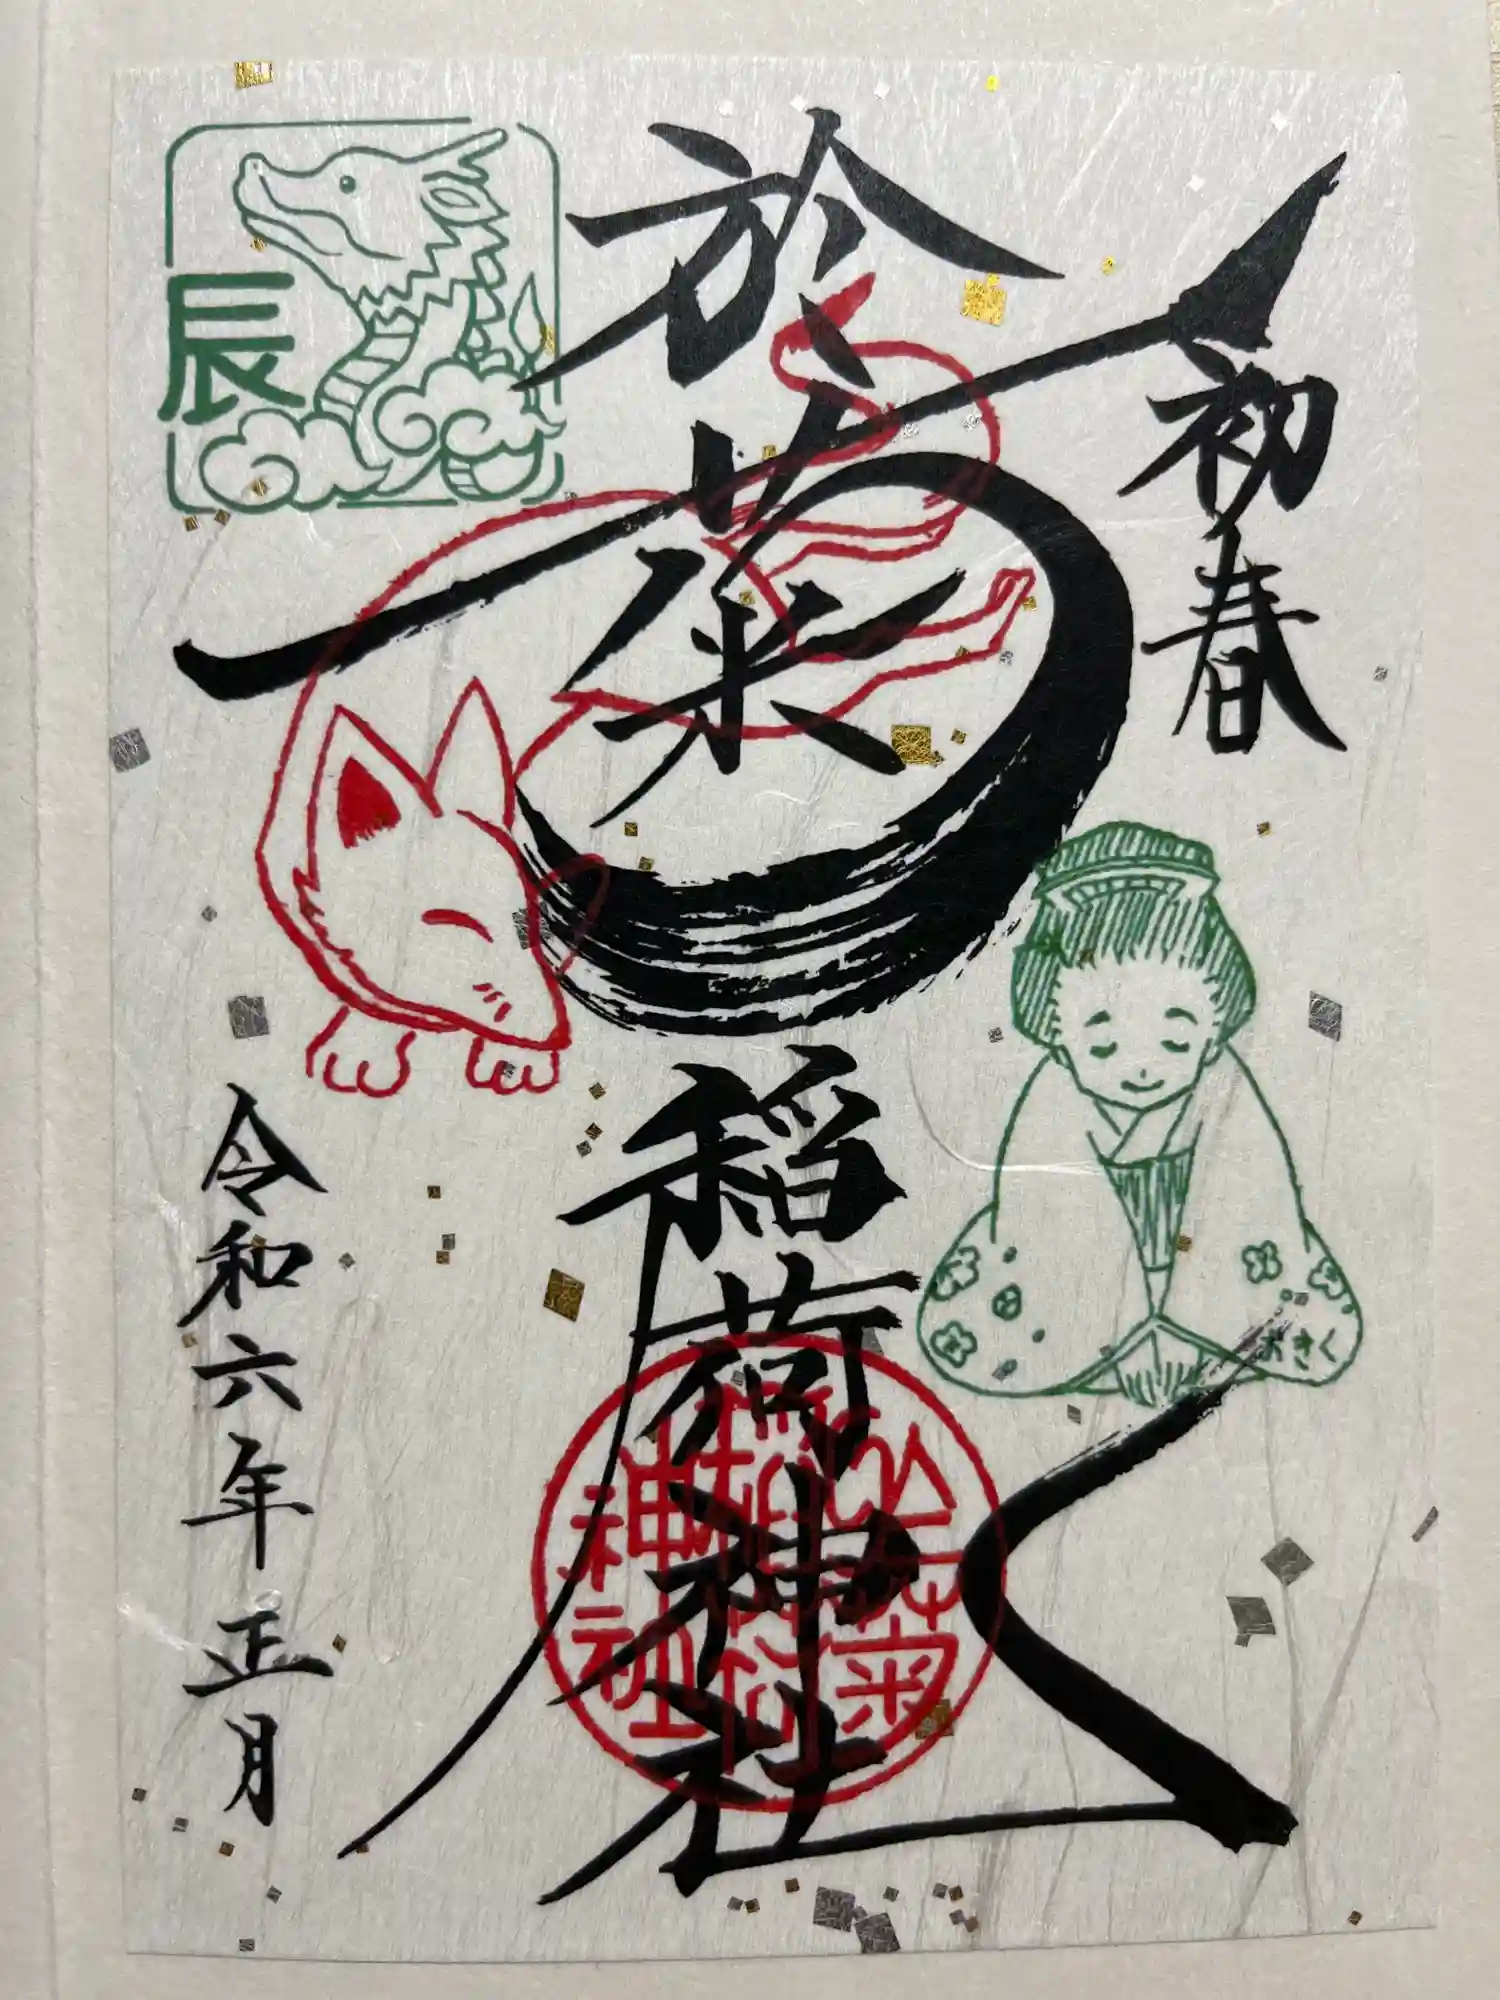 初春
於菊稲荷神社
令和六年正月
辰
おきく
於菊
稲荷
神社